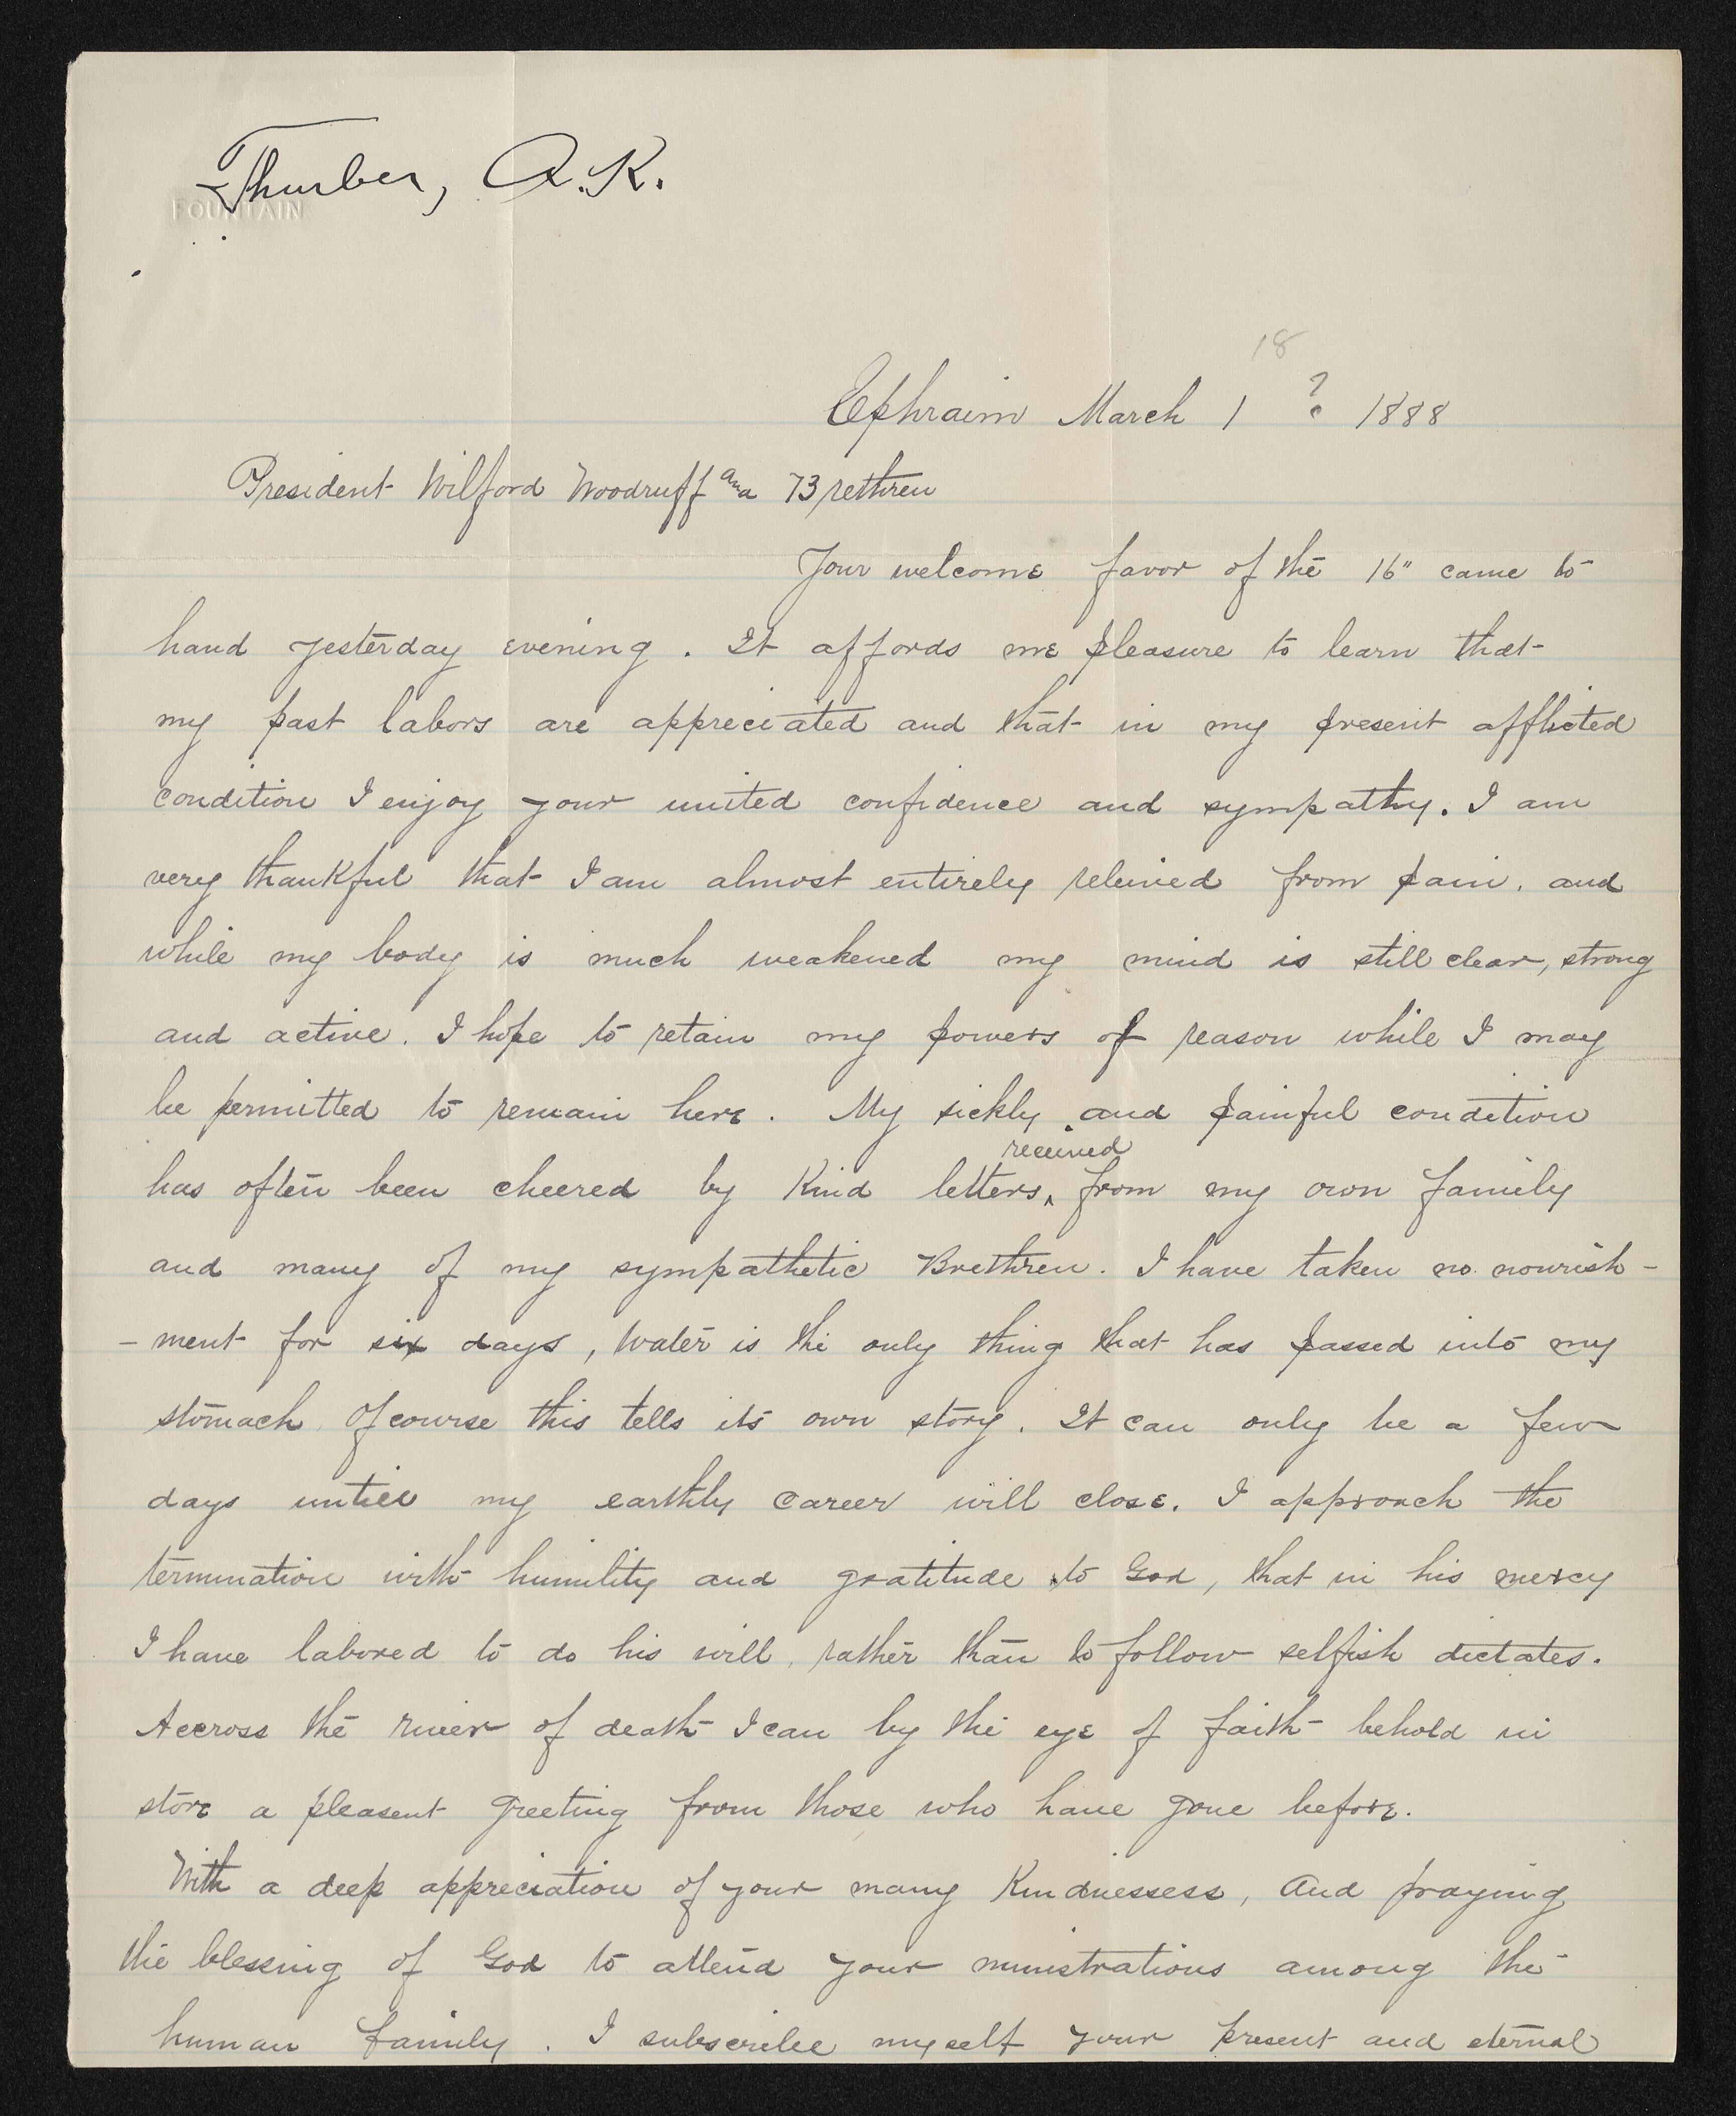 Thurber, A.K.
FOUNTAIN
18
Ephraim March 1 ? 1888
President Wilford Woodruff and Brethren
Your welcome favor of the 16" came to
hand yesterday evening. It affords me pleasure to learn that
my past labors are appreciated and that in my present afflicted
condition I enjoy your united confidence and sympathy. I am
very thankful that I am almost entirely releived from pain, and
while my body is much weakened my mind is still clear, strong
and active. I hope to retain my powers of reason while I may
be permitted to remain here. My sickly and painful condition
received
has often been cheered by Kind letters ^ from my own family
and many of my sympathetic Brethren. I have taken no nourish-
-ment for six days, Water is the only thing that has passed into my
stomach Of course this tells its own story. It can only be a few
days untill my earthly career will close. I approach the
termination with humility and gratitude to God, that in his mercy
I have labored to do his will, rather than to follow selfish dictates.
Accross the river of death I can by the eye of faith behold in
store a pleasent greeting from those who have gone before.
With a deep appreciation of your many Kindnessess, And praying
the blessing of God to attend your ministrations among the
human family. I subscribe myself your present and eternal